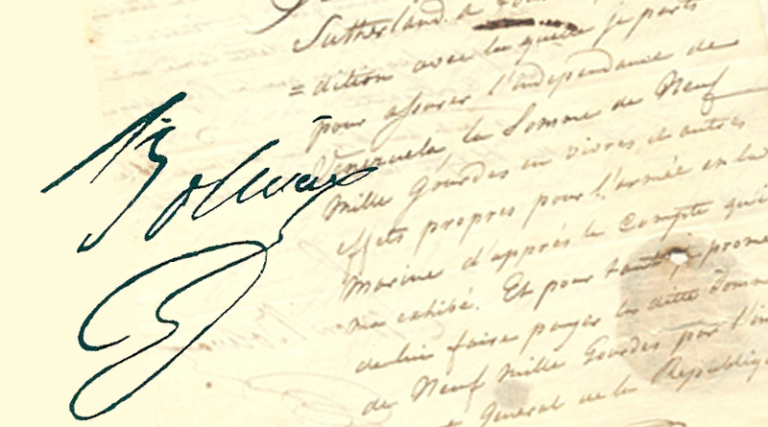 Bolívar
Sutherland a
=dition avec laquelle je parts
pour assurer l'independance de
Venezuela la Somme de Neuf
Mille Gourdes en vivres et autres
effets propres pour l'armée en la
Marine d'apprés le Compte qu'i
ma exhibé. Et pour tout je prome
de lui faire payer la ditte Somm
de Neuf Mille Gourdes par l'in
General de la Republiq